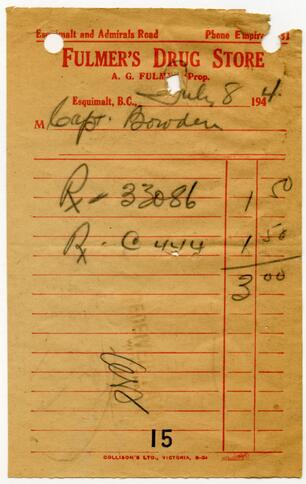 Esquimalt and Admirals Road Phone Empire
FULMER'S DRUG STORE
A. G. Prop.
Esquimalt, B.C., July 8 194 4
M Capt. Bowden
Rx - 33086 1 50
Rx - C 444 1 50
3 00
15
COLLISON'S LTD., VICTORIA,